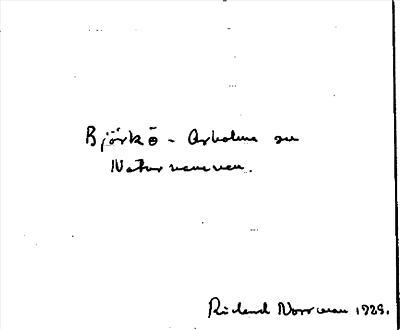 Björkö - Arholma sn
Naturnamnen.
Rickard Norrman 1929.